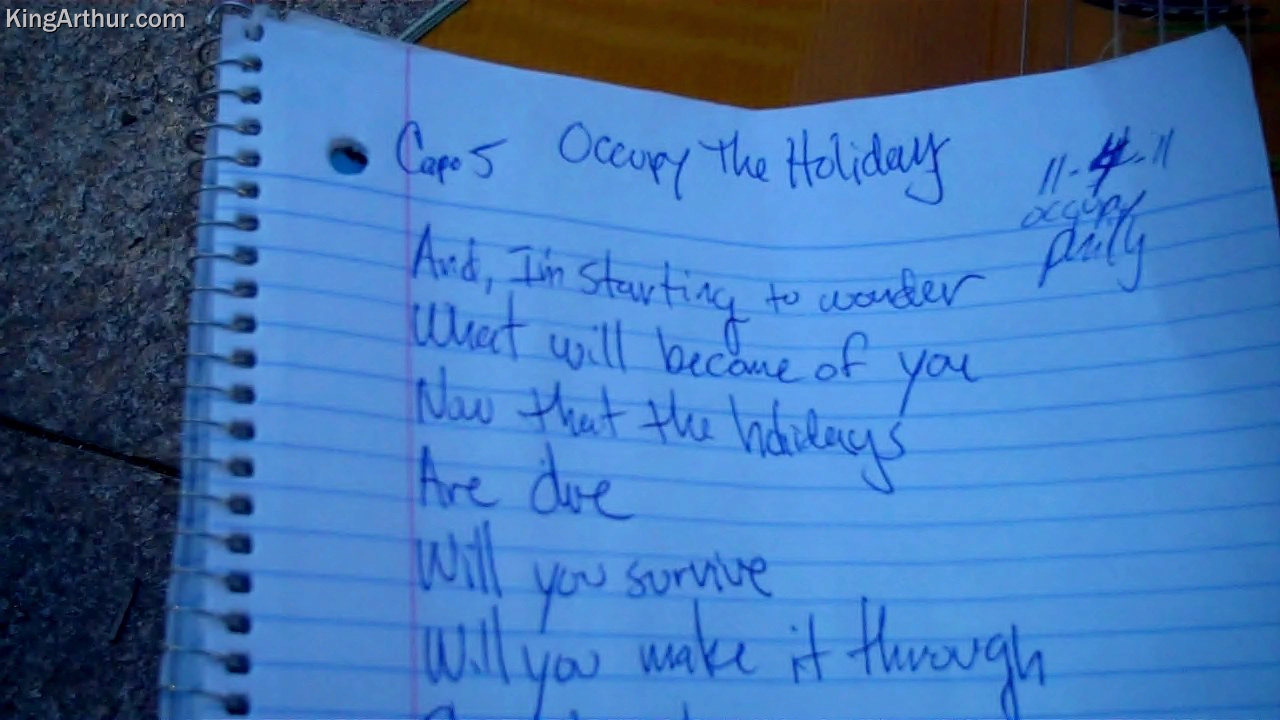 KingArthur.com
Capo 5 Occupy The Holiday
11-4-11
occupy
philly
And, I'm starting to wonder
What will become of you
Now that the holidays
Are due
Will you survive
Will you make it through